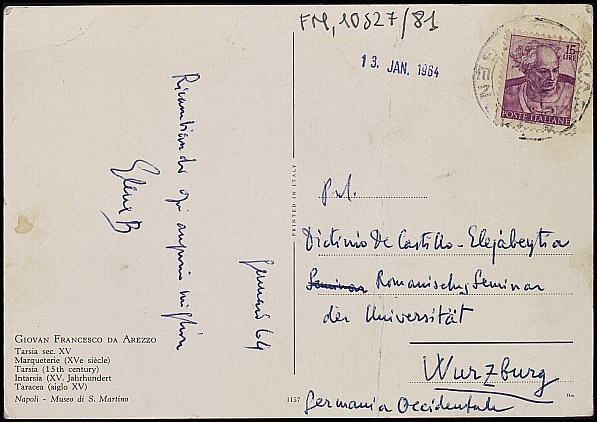 FM, 10527/81
13. JAN. 1964
15
LIRE
POSTE ITALIANE
Ricambiando ogni augurio migliore
Elena B
Gennaio 64
PRINTED IN ITALY
Prof.
Dictinio De Castillo-Elejábeytia
Seminar Romanisches Seminar
der Universität
Wurzburg
Germania Occidentale
GIOVAN FRANCESCO DA AREZZO
Tarsia sec. XV
Marqueterie (XVe siècle)
Tarsia (15th century)
Intarsia (XV. Jahrhundert
Taracea (siglo XV)
Napoli - Museo di S. Martino
1157